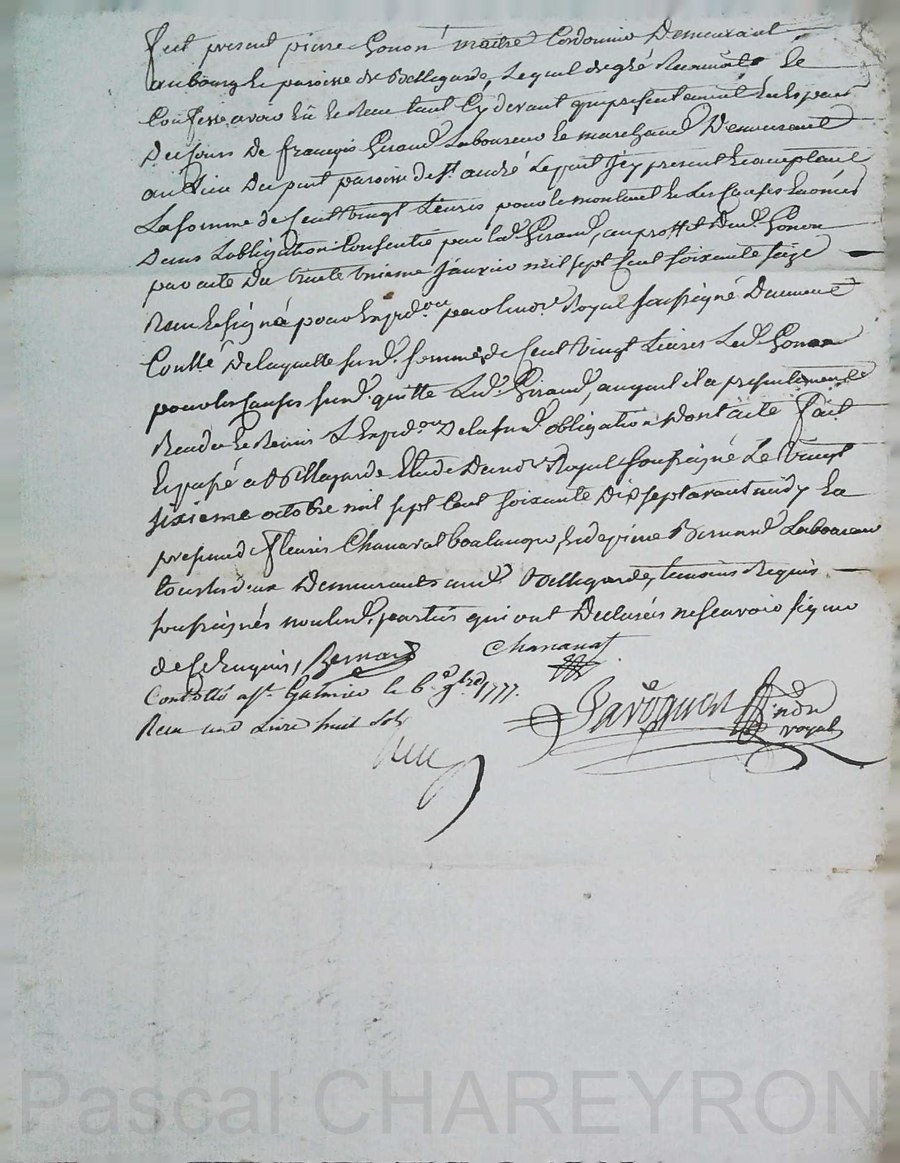 fut present pierre Gonon maitre Cordonnier Demeurant
au bourg & paroisse de Bellegarde, Lequel de gré Reconnoit &
Confesse avoir Eû & Reçu tant Cy devant que presentement En Especes
De Cours De françois Giraud Laboureur & marchand Demeurant
au Lieu Du paroisse de St. andré Le puit Icy present & acceptant
La somme de Cent vingt Livres pour le montant & Les Causes Enoncées
Dans Lobligation Consentie par Led. Giraud, au proffit dud. Gonon
par acte Du trente unieme Janvier mil sept Cent soixante seize
Reçu & signé pour Expedon. par le nore. Royal soussigné Duement
Contlé. De laquelle susd. somme, de Cent vingt Livres Led. Gonon
pour les Causes susd. quitte Led. Giraud, auquel il a presentement
Rendu & Remis L'Expedon. De la susd. obligation, Dont acte fait
& passé a Bellegarde Etude Du nore. Royal soussigné Le vingt
sixieme octobre mil sept Cent soixante Dix sept avant midy En
presence de fleuris Chanavat boulanger, & de pierre Bernard Laboureur
tous les deux Demeurants aud. Bellegarde, temoins Requis
soussignés non Lesd. parties qui ont Declarés ne scavoir signer
de Ce Enquis, Bernard Chanavat
Controllé a St. Galmier le 6e. 9bre. 1777.
Reçu une Livre huit sols
nore
royal
Pascal CHAREYRON